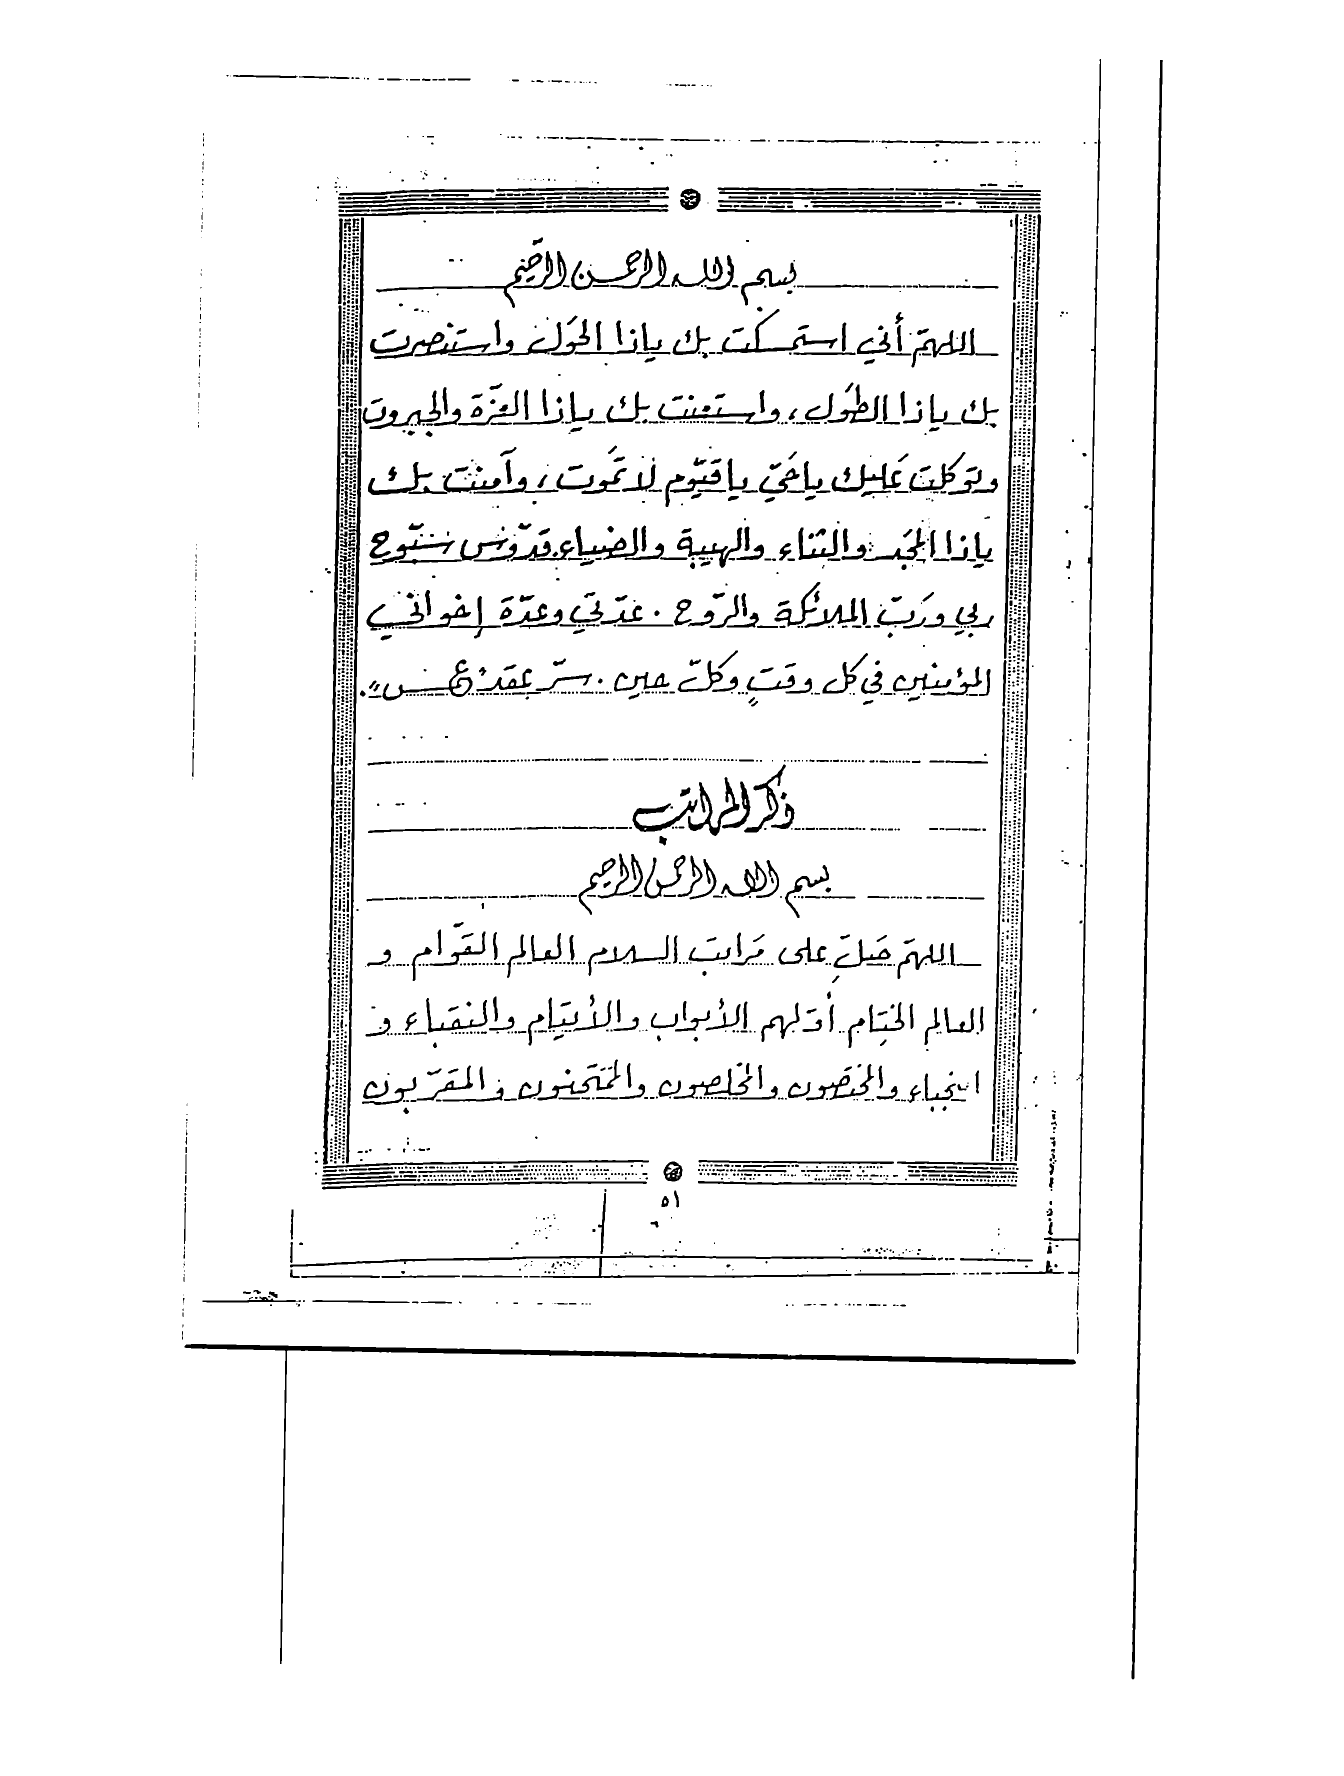 بسم الله الرحمن الرحيم
اللهمّ أني استمسكت بك ياذا الحَول واستنصرت
بك ياذا الطَول، واستعنت بك ياذا العزّة والجبروت
وتوكلت عَليك ياحَيّ ياقيّوم لا تَموت، وآمنت بك
ياذا المجَد والثناء والهيبة والضياء قدّوس سبّوح
ربي ورَبّ الملائكة والرّوح . عدّتي وعدّة إخواني
المؤمنين في كل وقتٍ وكلّ حين . سرّ عقد
ذكر المراتب
بسم الله الرحمن الرحيم
اللهمّ صَلِّ على مَراتب السلام العالم القوّام و
العالم الختام أوّلهم الأبواب والأيتام والنقباء و
النجباء والمختصون والمخلصون والممتَحنون والمقرّبون
٥١